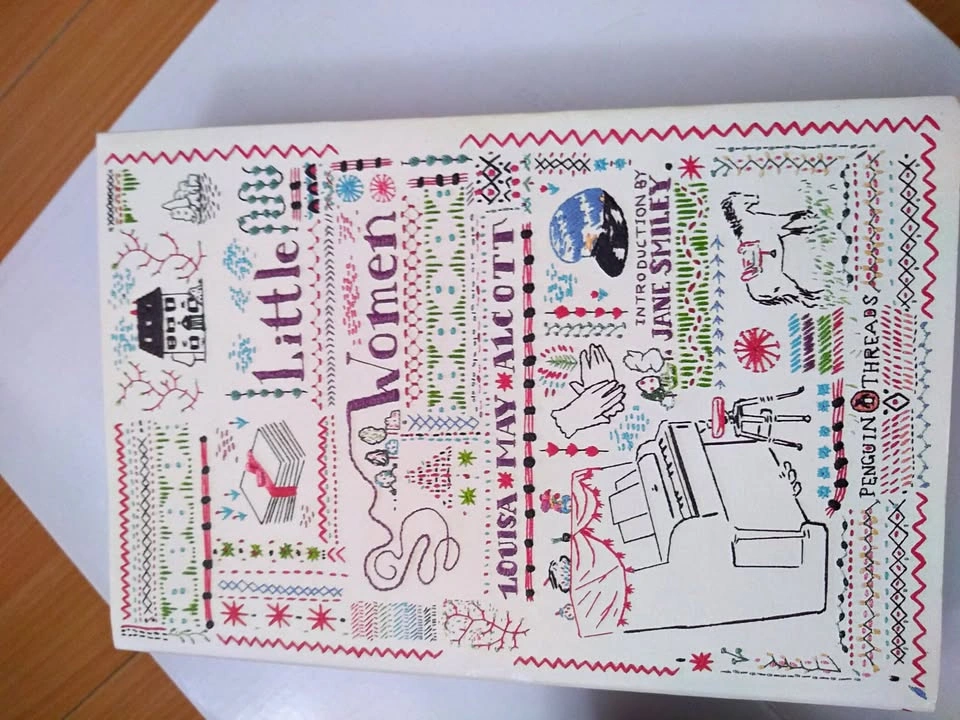 Little
Women
LOUISA MAY ALCOTT
INTRODUCTION BY
JANE SMILEY
PENGUIN THREADS